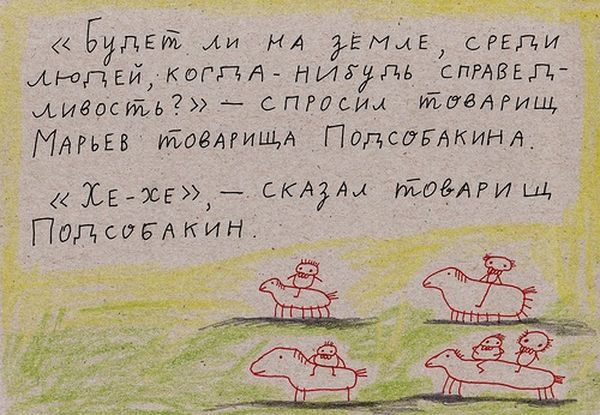 « Будет ли на земле, среди
людей, когда-нибудь справед-
ливость?» – спросил товарищ
Марьев товарища Подсобакина.
«Хе-хе», – сказал товарищ
Подсобакин.